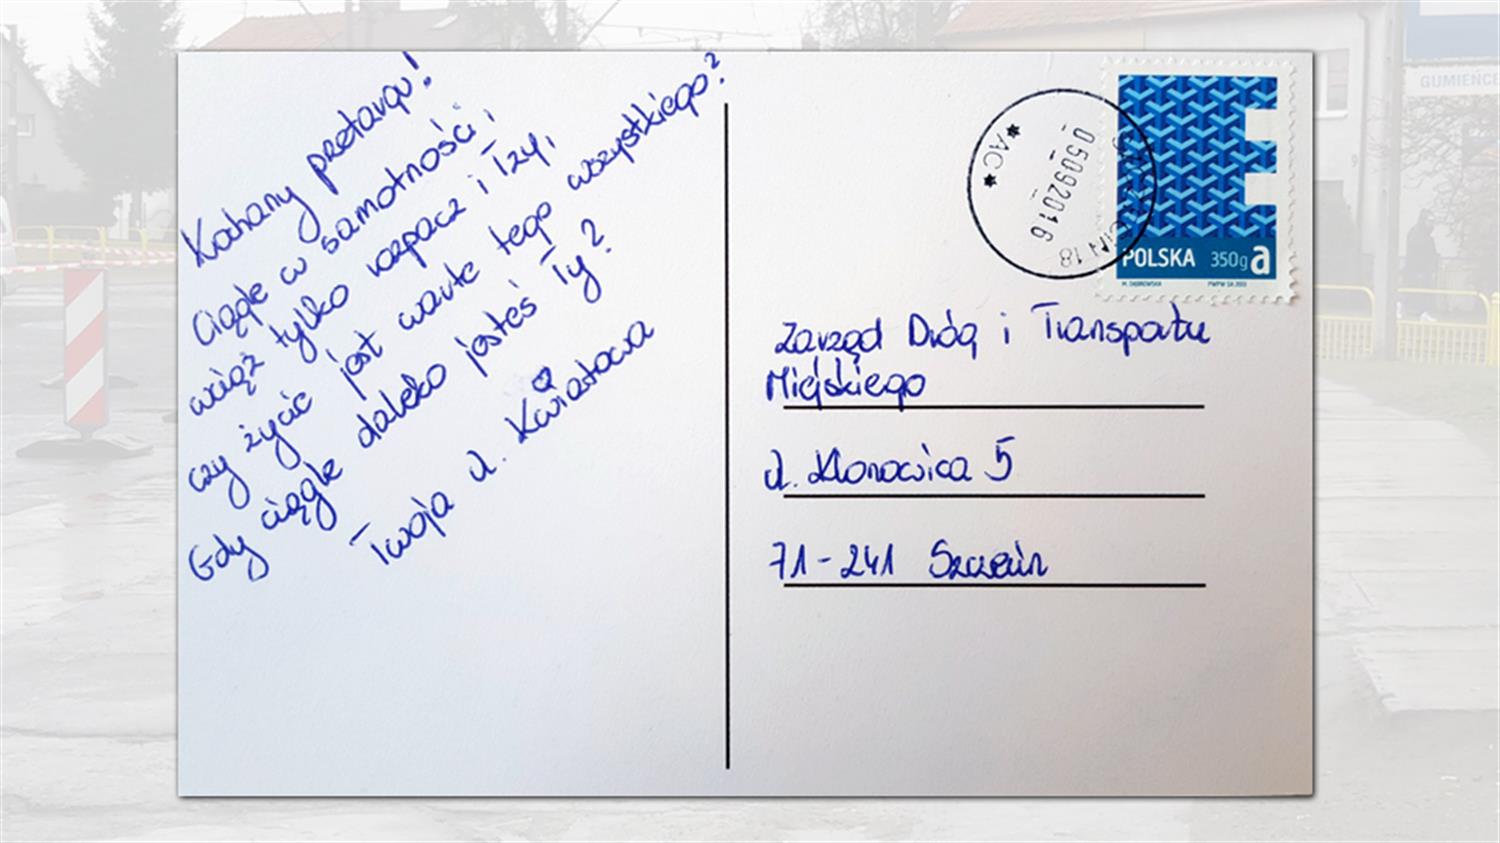 Kochany przetargu!
Ciągle w samotności,
wciąż tylko rozpacz i łzy,
czy życie jest warte tego wszystkiego?
Gdy ciągle daleko jesteś Ty?
Twoja ul. Kwiatowa
POLSKA 350g a
M. DĄBROWSKA PWPW SA 2013
*AC*
05092016
SZCZECIN 18
Zarząd Dróg i Transportu
Miejskiego
ul. Klonowica 5
71-241 Szczecin
GUMIEŃCE